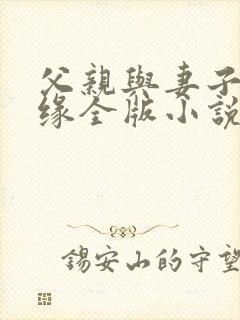 父親與妻子
緣全版小說
錫安山的守望